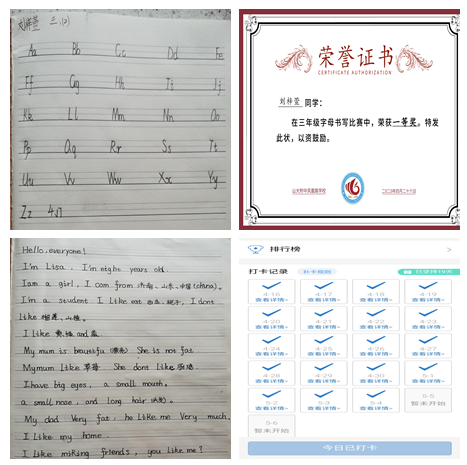 刘梓萱 三.(2)
Aa Bb Cc Dd Ee
Ff Gg Hh Ii Jj
Kk Ll Mm Nn Oo
Pp Qq Rr Ss Tt
Uu Vv Ww Xx Yy
Zz
荣誉证书
CERTIFICATE AUTHORIZATION
刘梓萱 同学:
在三年级字母书写比赛中,荣获一等奖。特发
此状,以资鼓励。
二〇二〇年四月二十六日
Hello, everyone!
I'm Lisa, I'm eight years old.
I am a girl, I com from 济南,山东,中国(china).
I'm a student I like eat 西瓜, 桃子, I dont
like 榴莲,山楂。
I like and
My mum is beautifu (漂亮) She is not fat
My mum like 草莓 She dont like
I have big eyes, a small mouth,
a small nose, and long hair
My dad Very fat, he like me Very much.
I Like my home.
I Like miking friends, you like me?
排行榜 >
打卡记录 补卡规则 已坚持19天
4-16 4-17 4-18 4-19
查看详情~ 查看详情~ 查看详情~ 查看详情~
4-20 4-21 4-22 4-23
查看详情~ 查看详情~ 查看详情~ 查看详情~
4-24 4-25 4-26 4-27
查看详情~ 查看详情~ 查看详情~ 查看详情~
4-28 4-29 4-30 5-1
查看详情~ 查看详情~ 查看详情~ 查看详情~
5-2 5-3 5-4 5-5
查看详情~ 查看详情~ 查看详情~ 暂未开始
5-6
暂未开始
今日已打卡